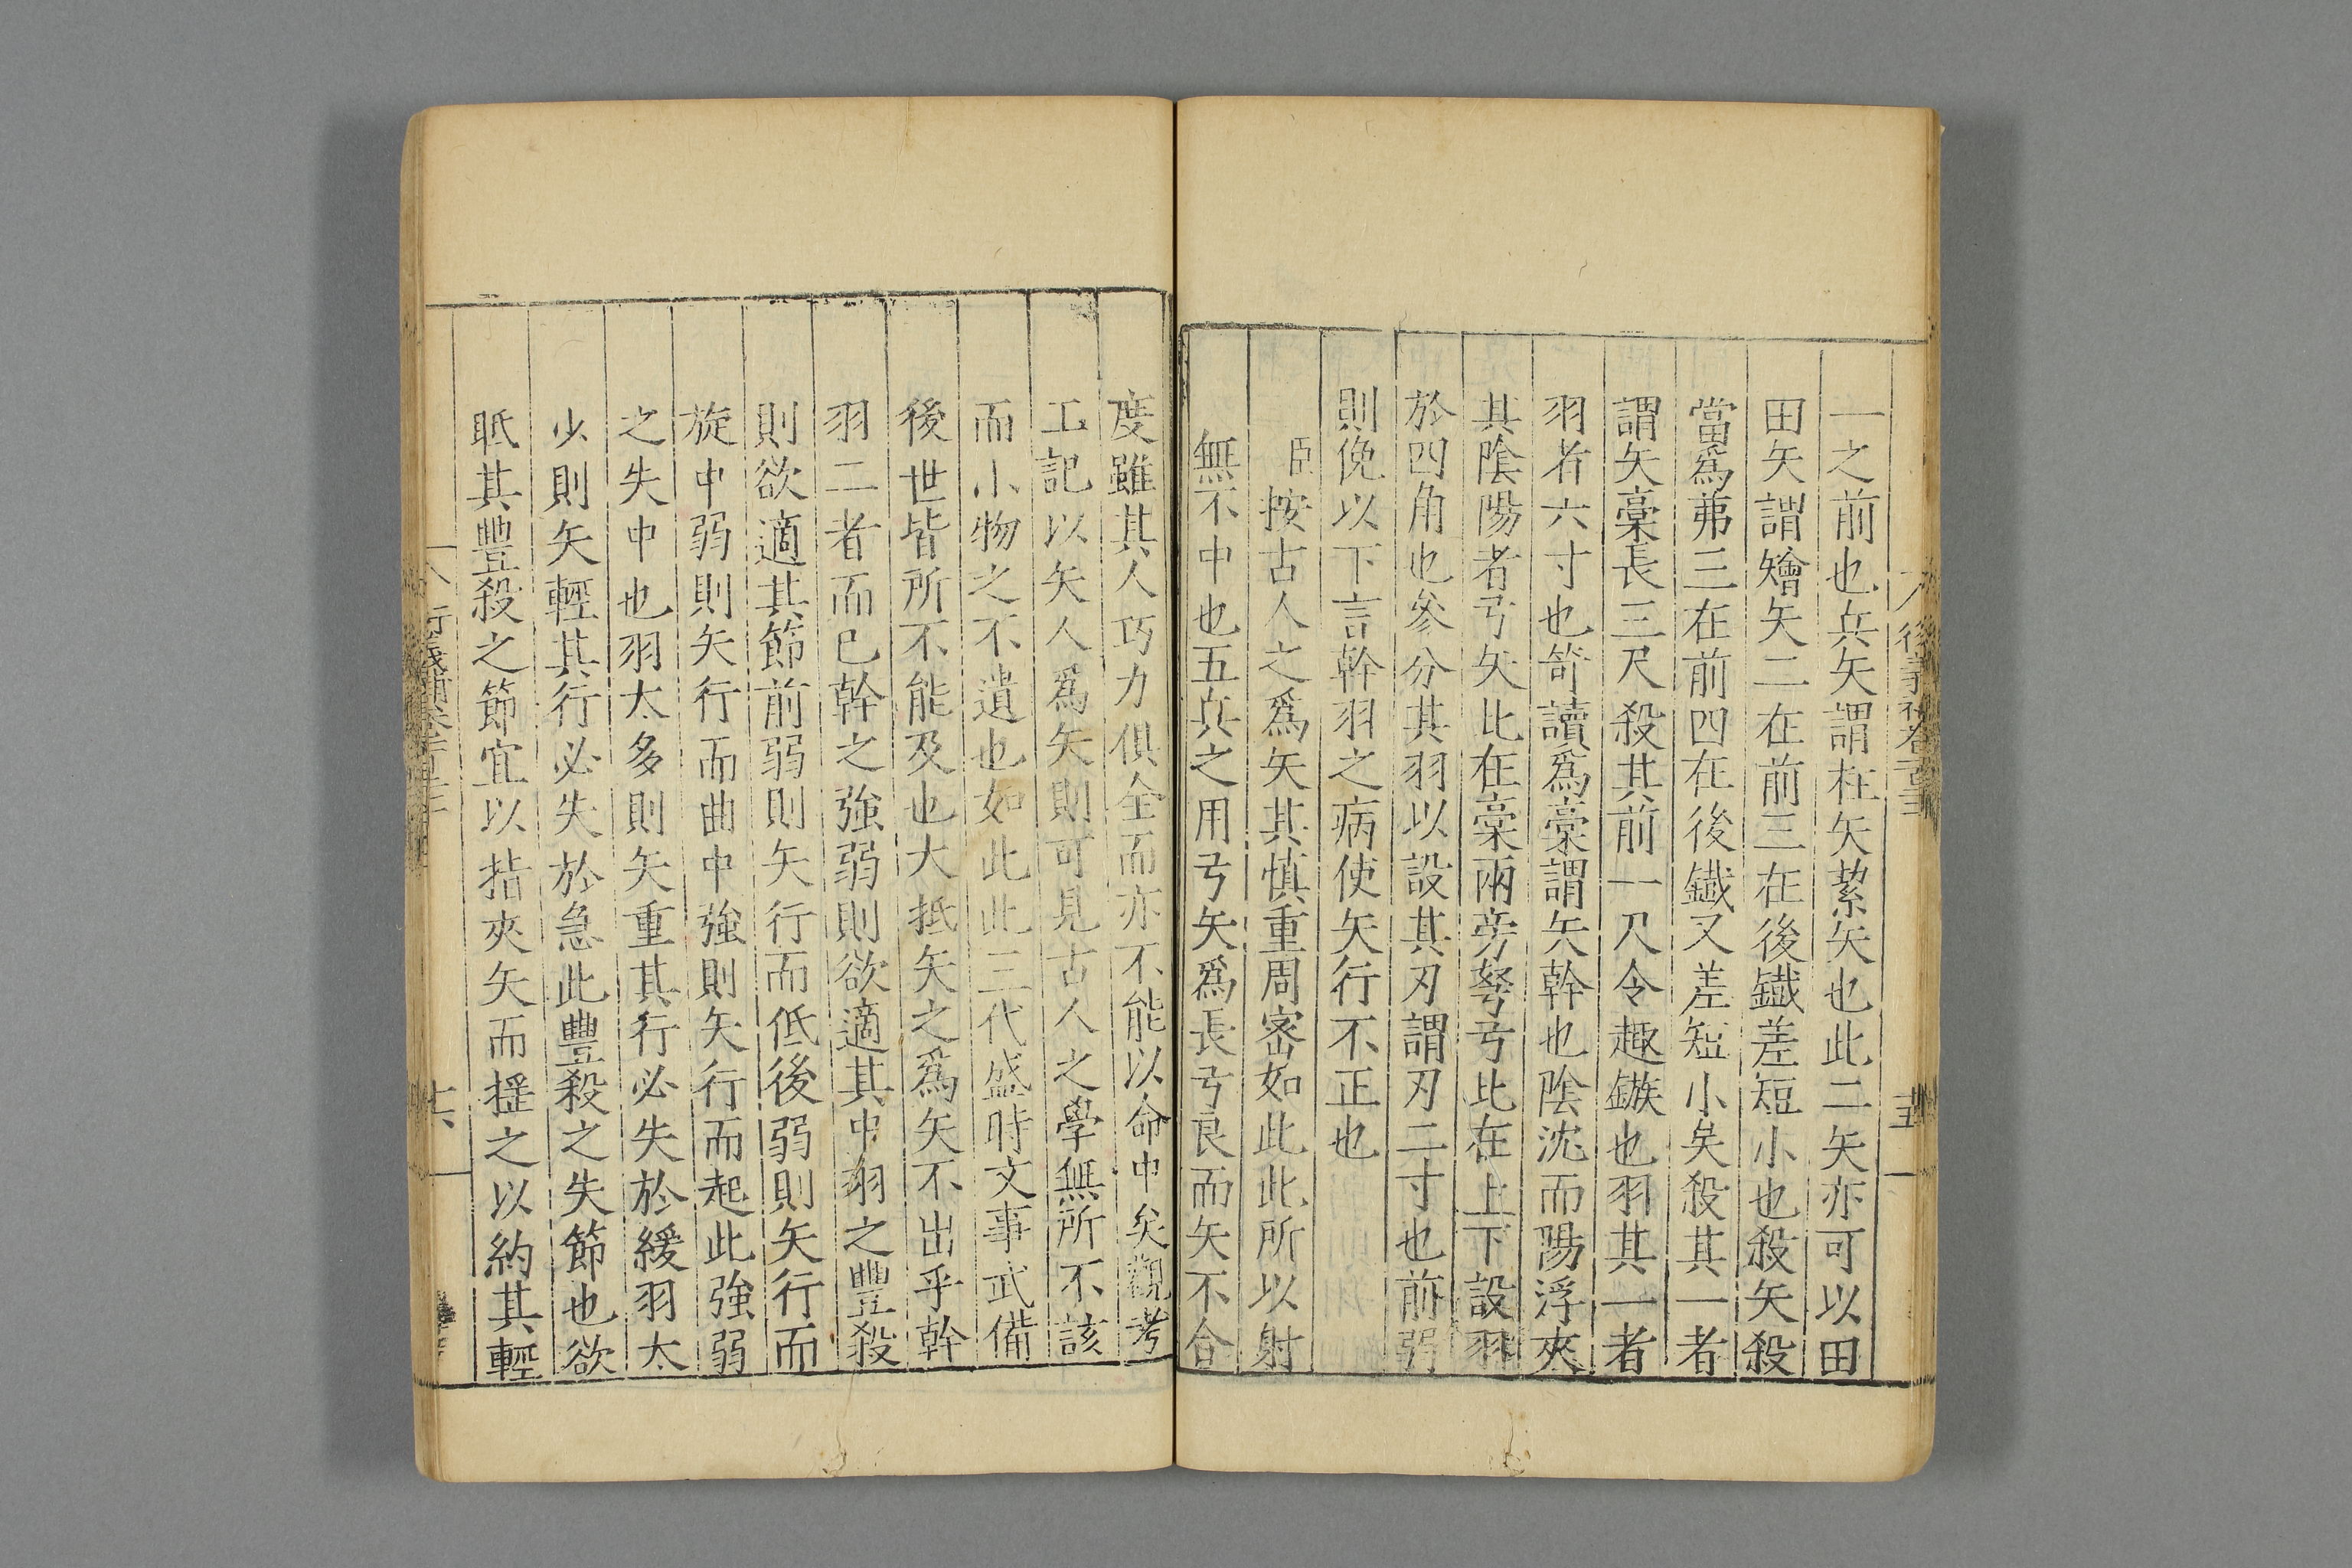 一之前也兵矢謂枉矢絜矢也此二矢亦可以田
田矢謂矰矢二在前三在後鐵差短小也殺矢殺
當爲茀三在前四在後鐵又差短小矣殺其一者
謂矢稾長三尺殺其前一尺令趣鏃也羽其一者
羽者六寸也笴讀爲稾謂矢幹也陰沈而陽浮夾
其陰陽者弓矢比在稾兩旁弩弓比在上下設羽
於四角也參分其羽以設其刃謂刃二寸也前弱
則俛以下言幹羽之病使矢行不正也
臣按古人之爲矢其慎重周宻如此此所以射
無不中也五兵之用弓矢爲長弓良而矢不合
度雖其人巧力俱全而亦不能以命中矣觀考
工記以矢人爲矢則可見古人之學無所不該
而小物之不遺也如此此三代盛時文事武備
後世皆所不能及也大抵矢之爲矢不出乎幹
羽二者而巳幹之強弱則欲適其中羽之豐殺
則欲適其節前弱則矢行而低後弱則矢行而
旋中弱則矢行而曲中強則矢行而起此強弱
之失中也羽太多則矢重其行必失於緩羽太
少則矢輕其行必失於急此豐殺之失節也欲
眡其豐殺之節宜以㧗夾矢而揺之以約其輕